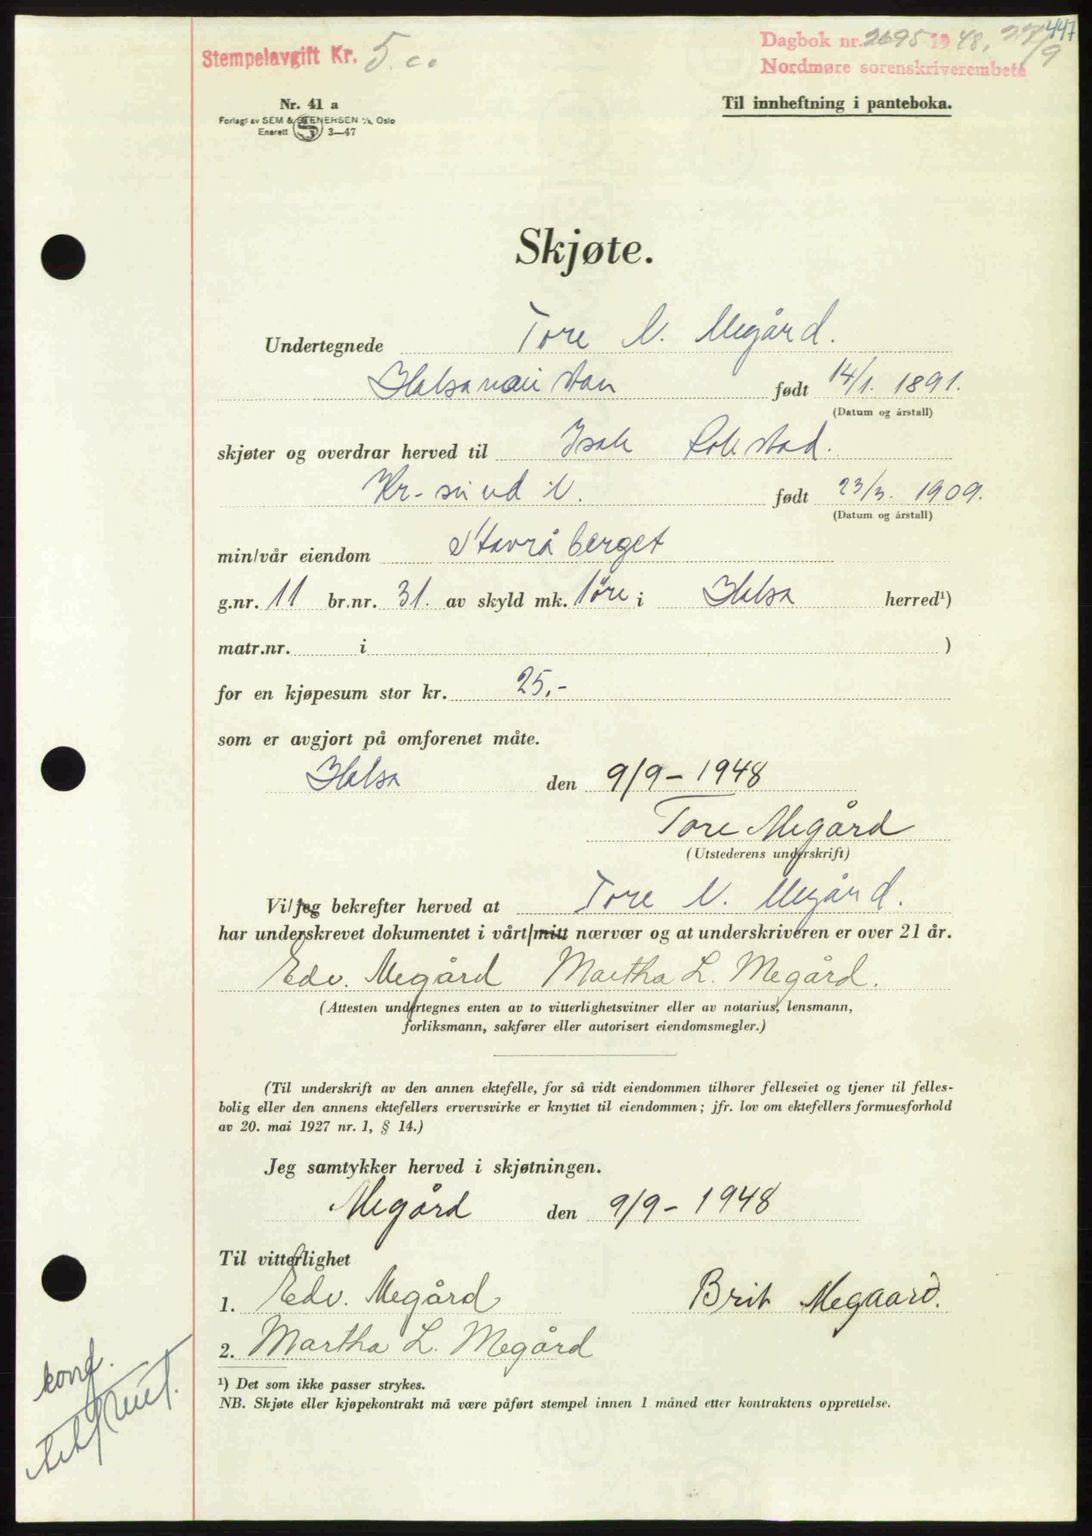 447
Stempelavgift Kr. 5.00
Dagbok nr. 2695 1948, 27/9
Nordmøre sorenskriverembete
Nr. 41 a
Forlagt av SEM & STENERSEN A/S, Oslo
Enerett S 3—47
Til innheftning i panteboka.
Skjøte.
Undertegnede Tore N. Megård.
Halsanaustan født 14/1. 1891.
(Datum og årstall)
skjøter og overdrar herved til Isak Rokstad.
Kr-sund N. født 23/3. 1909.
(Datum og årstall)
min/vår eiendom Stavråberget
g.nr. 11 br.nr. 31. av skyld mk. 1 øre i Halsa herred¹)
matr.nr. i )
for en kjøpesum stor kr. 25,-
som er avgjort på omforenet måte.
Halsa den 9/9 - 1948
Tore Megård
(Utstederens underskrift)
Vi/jeg bekrefter herved at Tore N. Megård.
har underskrevet dokumentet i vårt/mitt nærvær og at underskriveren er over 21 år.
Edv. Megård Martha L. Megård.
(Attesten undertegnes enten av to vitterlighetsvitner eller av notarius, lensmann,
forliksmann, sakfører eller autorisert eiendomsmegler.)
(Til underskrift av den annen ektefelle, for så vidt eiendommen tilhører felleseiet og tjener til felles-
bolig eller den annens ektefellers ervervsvirke er knyttet til eiendommen; jfr. lov om ektefellers formuesforhold
av 20. mai 1927 nr. 1, § 14.)
Jeg samtykker herved i skjøtningen.
Megård den 9/9 - 1948
Til vitterlighet
1. Edv. Megård Brit Megaard.
2. Martha L. Megård
konf.
¹) Det som ikke passer strykes.
NB. Skjøte eller kjøpekontrakt må være påført stempel innen 1 måned etter kontraktens opprettelse.